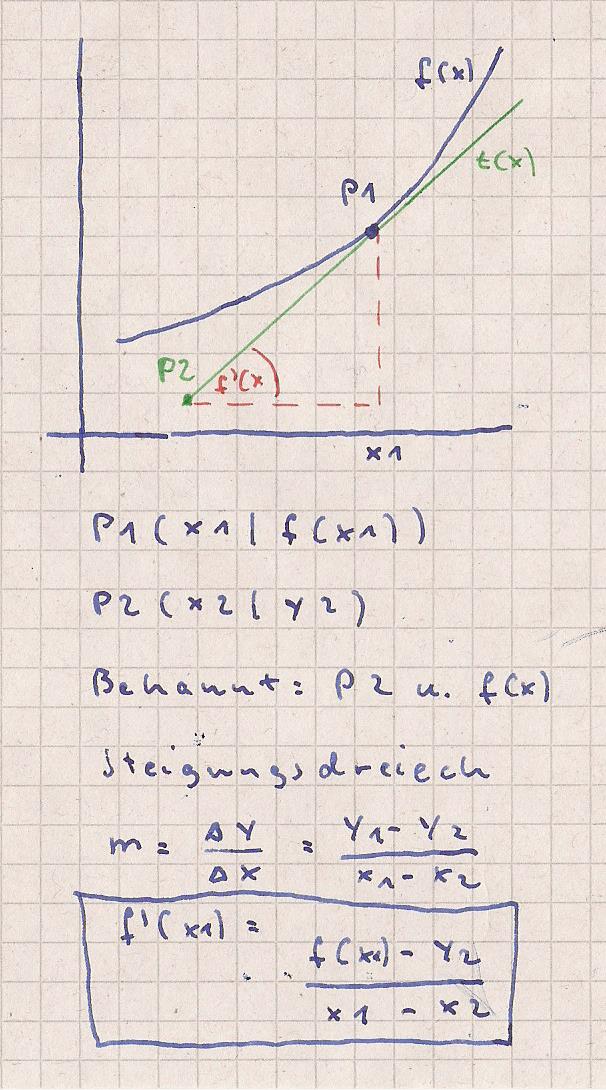 f(x)
t(x)
P1
P2
f'(x
x1
P1(x1|f(x1))
P2(x2|y2)
Bekannt: P2 u. f(x)
Steigungsdreieck
m = ΔY/ΔX = (Y1-Y2)/(x1-x2)
f'(x1) =
(f(x1)-Y2)/(x1-x2)